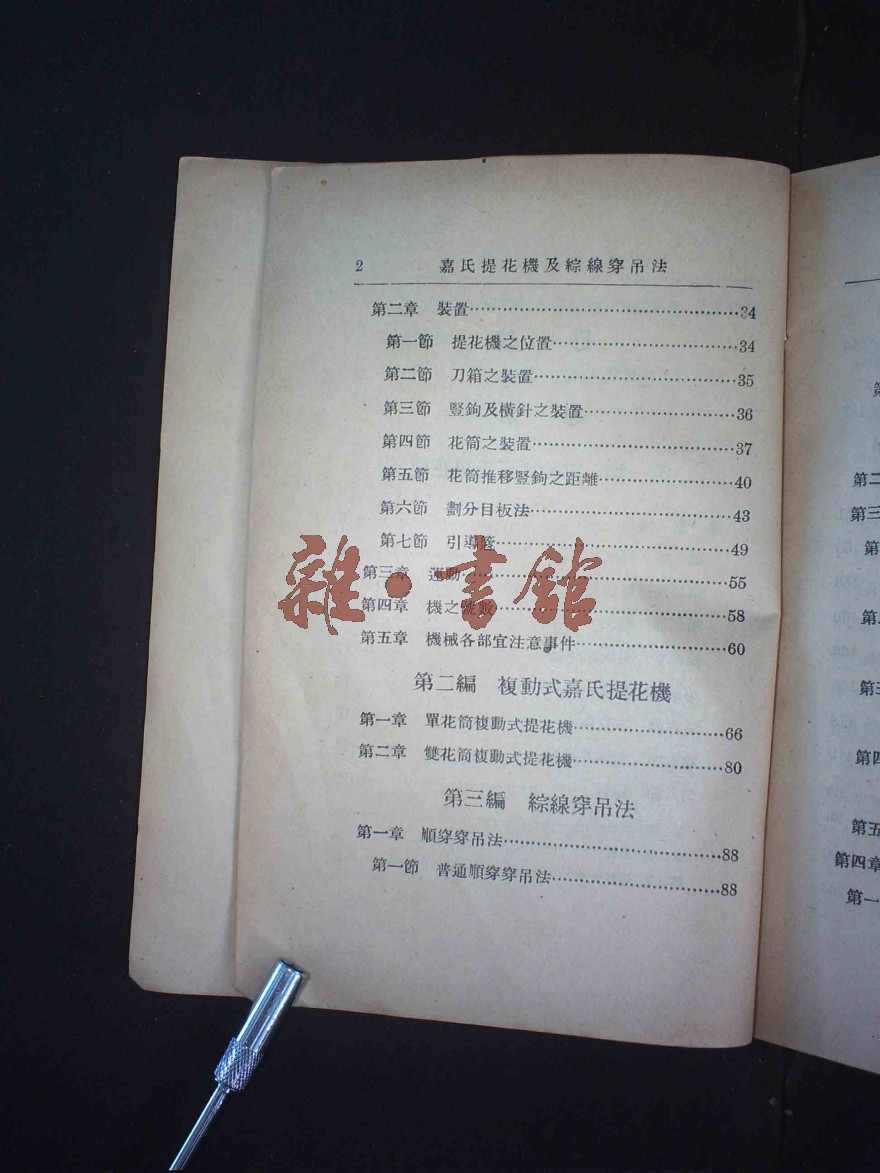 2 嘉氏提花機及綜線穿吊法
第二章 裝置……34
第一節 提花機之位置……34
第二節 刀箱之裝置……35
第三節 豎鉤及橫針之裝置……36
第四節 花筒之裝置……37
第五節 花筒推移豎鉤之距離……40
第六節 劃分目板法……43
第七節 引導箋……49
第三章 運動……55
第四章 機之號數……58
第五章 機械各部宜注意事件……60
第二編 複動式嘉氏提花機
第一章 單花筒複動式提花機……66
第二章 雙花筒複動式提花機……80
第三編 綜線穿吊法
第一章 順穿穿吊法……88
第一節 普通順穿穿吊法……88
雜·書館
第二
第三
第
第
第四
第五
第四章
第一